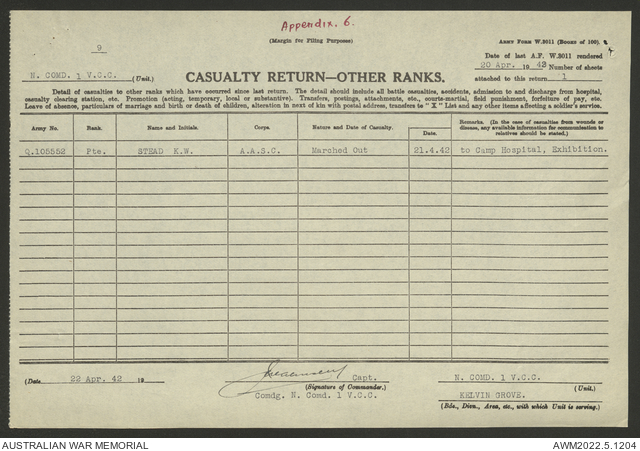 Appendix. 6.
9
(Margin for Filing Purposes)
ARMY FORM W.3011 (Books of 100).
Date of last A.F. W.3011 rendered
20 Apr. 19 42 Number of sheets
attached to this return 1
N. COMD. 1 V.C.C. (Unit.)
CASUALTY RETURN—OTHER RANKS.
Detail of casualties to other ranks which have occurred since last return. The detail should include all battle casualties, accidents, admission to and discharge from hospital,
casualty clearing station, etc. Promotion (acting, temporary, local or substantive). Transfers, postings, attachments, etc., courts-martial, field punishment, forfeiture of pay, etc.
Leave of absence, particulars of marriage and birth or death of children, alteration in next of kin with postal address, transfers to "X" List and any other items affecting a soldier's service.
Army No. Rank. Name and Initials. Corps. Nature and Date of Casualty. Date. Remarks. (In the case of casualties from wounds or
disease, any available information for communication to
relatives should be stated.)
Q.105552 Pte. STEAD K.W. A.A.S.C. Marched Out 21.4.42 to Camp Hospital, Exhibition.
(Date 22 Apr. 42 19
Capt.
(Signature of Commander.)
Comdg. N. Comd. 1 V.C.C.
N. COMD. 1 V.C.C.
(Unit.)
KELVIN GROVE.
(Bde., Divn., Area, etc., with which Unit is serving.)
AUSTRALIAN WAR MEMORIAL
AWM2022.5.1204